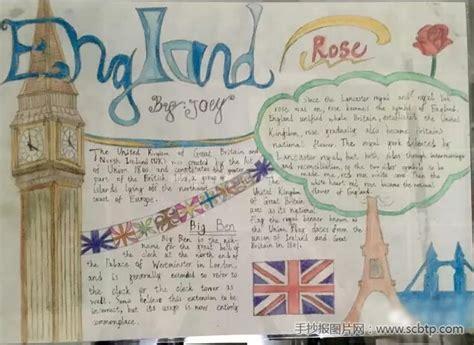 England
By: Joey
Rose
Since the Lancaster royal and royal York
rose was on, rose became the symbol of England.
England unified whole Britain, established the United
Kingdom, rose gradually also became britain's
national flower. The royal york defected by
Lancaster royal, but both sides through intermarriage
and reconciliation, so the two other roses is to be
made one, red rose, white rose. Then the
white heart red rose become the national
flower of England.
The United Kingdom of Great Britain and
North Ireland (UK) was created by the Act
of Union 1800 and constitutes the greater
part of the British Isles, a group of
islands lying off the northwest
coast of Europe.
The United
Kingdom
of Great Britain
uses as its national
flag the royal banner known as
the Union Flag dates from the
union of Ireland and Great
Britain in 1801.
Big Ben
Big Ben is the nick-
name for the great bell of
the clock at the north end of
the Palace of Westminster in London,
and is generally extended to refer to
the clock or the clock tower as
well. Some believe this extension to be
incorrect, but its usage is now entirely
commonplace.
手抄报图片网:www.scbtp.com